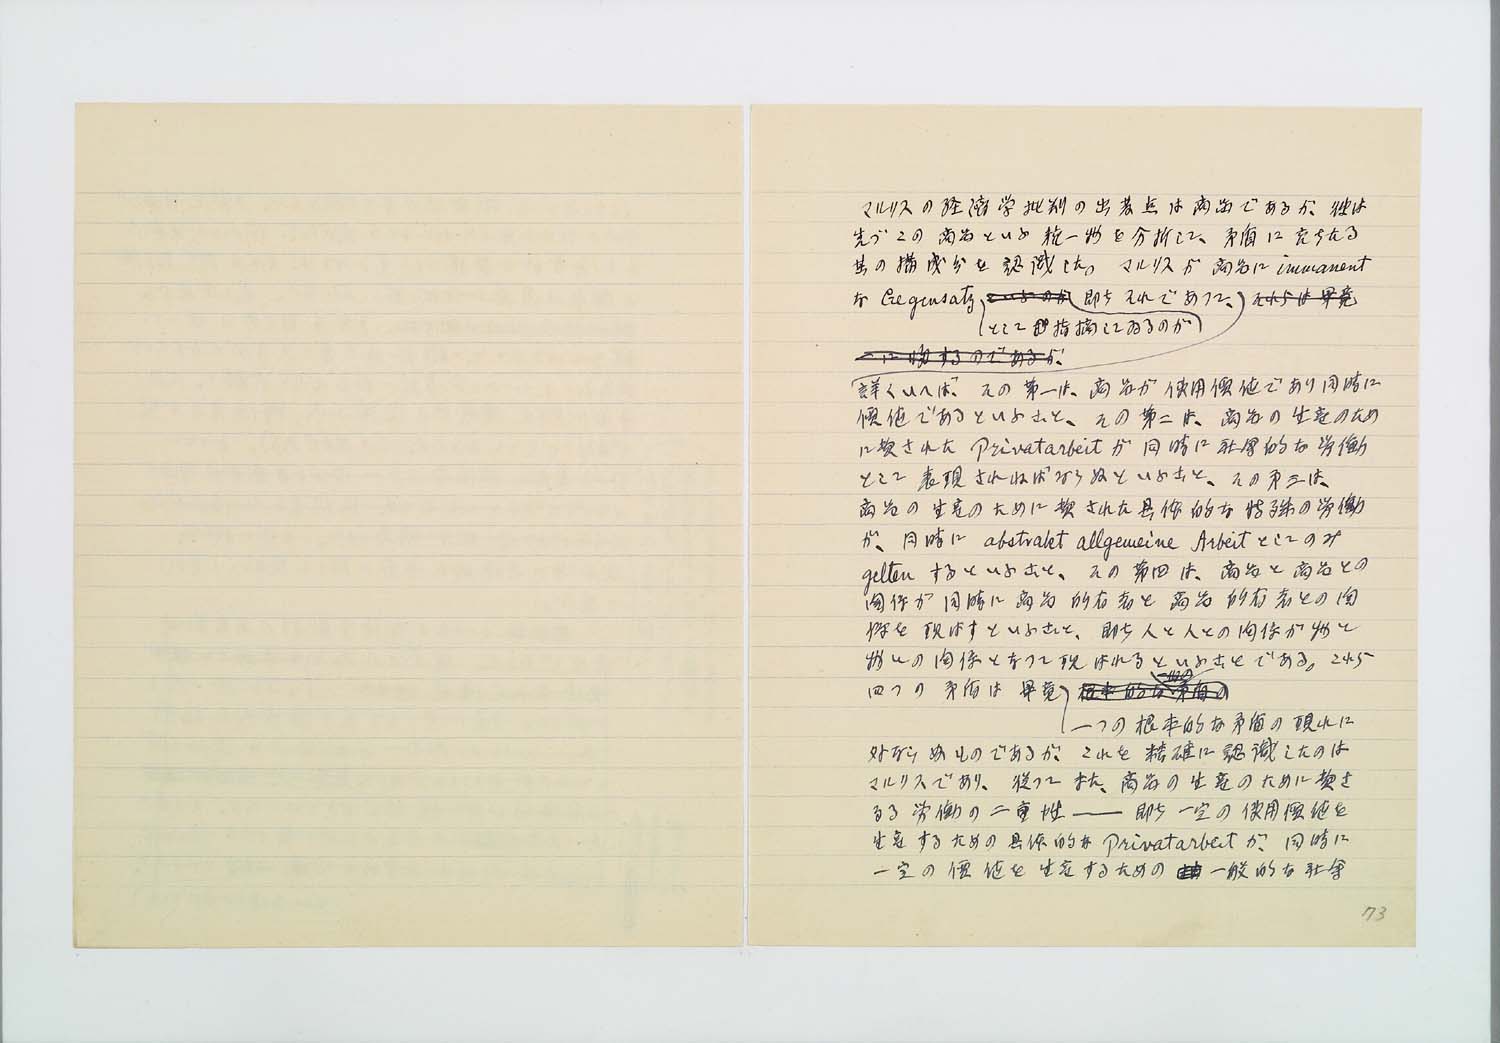 マルクスの経済学批判の出発点は商品であるが、彼は
先づこの商品といふ統一物を分析して、矛盾に充ちたる
其の構成分を認識した。マルクスが商品に immanent
な Gegensatz といふのが 即ちそれであつて、それらは畢竟
として指摘してゐるのが
一に帰するのであるが、
詳くいへば、その第一は、商品が使用価値であり同時に
価値であるといふこと、その第二は、商品の生産のため
に費された Privatarbeit が同時に社会的な労働
として表現されねばならぬといふこと、その第三は、
商品の生産のために費された具体的な特殊の労働
が、同時に abstrakt allgemeine Arbeit としてのみ
gelten するといふこと、その第四は、商品と商品との
関係が同時に商品所有者と商品所有者との関
係を現はすといふこと、即ち人と人との関係が物と
物との関係となつて現はれるといふことである。これら
四つの矛盾は畢竟 根本的な矛盾の
一つの根本的な矛盾の現れに
外ならぬものであるが、これを精確に認識したのは
マルクスであり、従つてまた、商品の生産のために費さ
るる労働の二重性——即ち一定の使用価値を
生産するための具体的な Privatarbeit が、同時に
一定の価値を生産するための一般的な社会
73